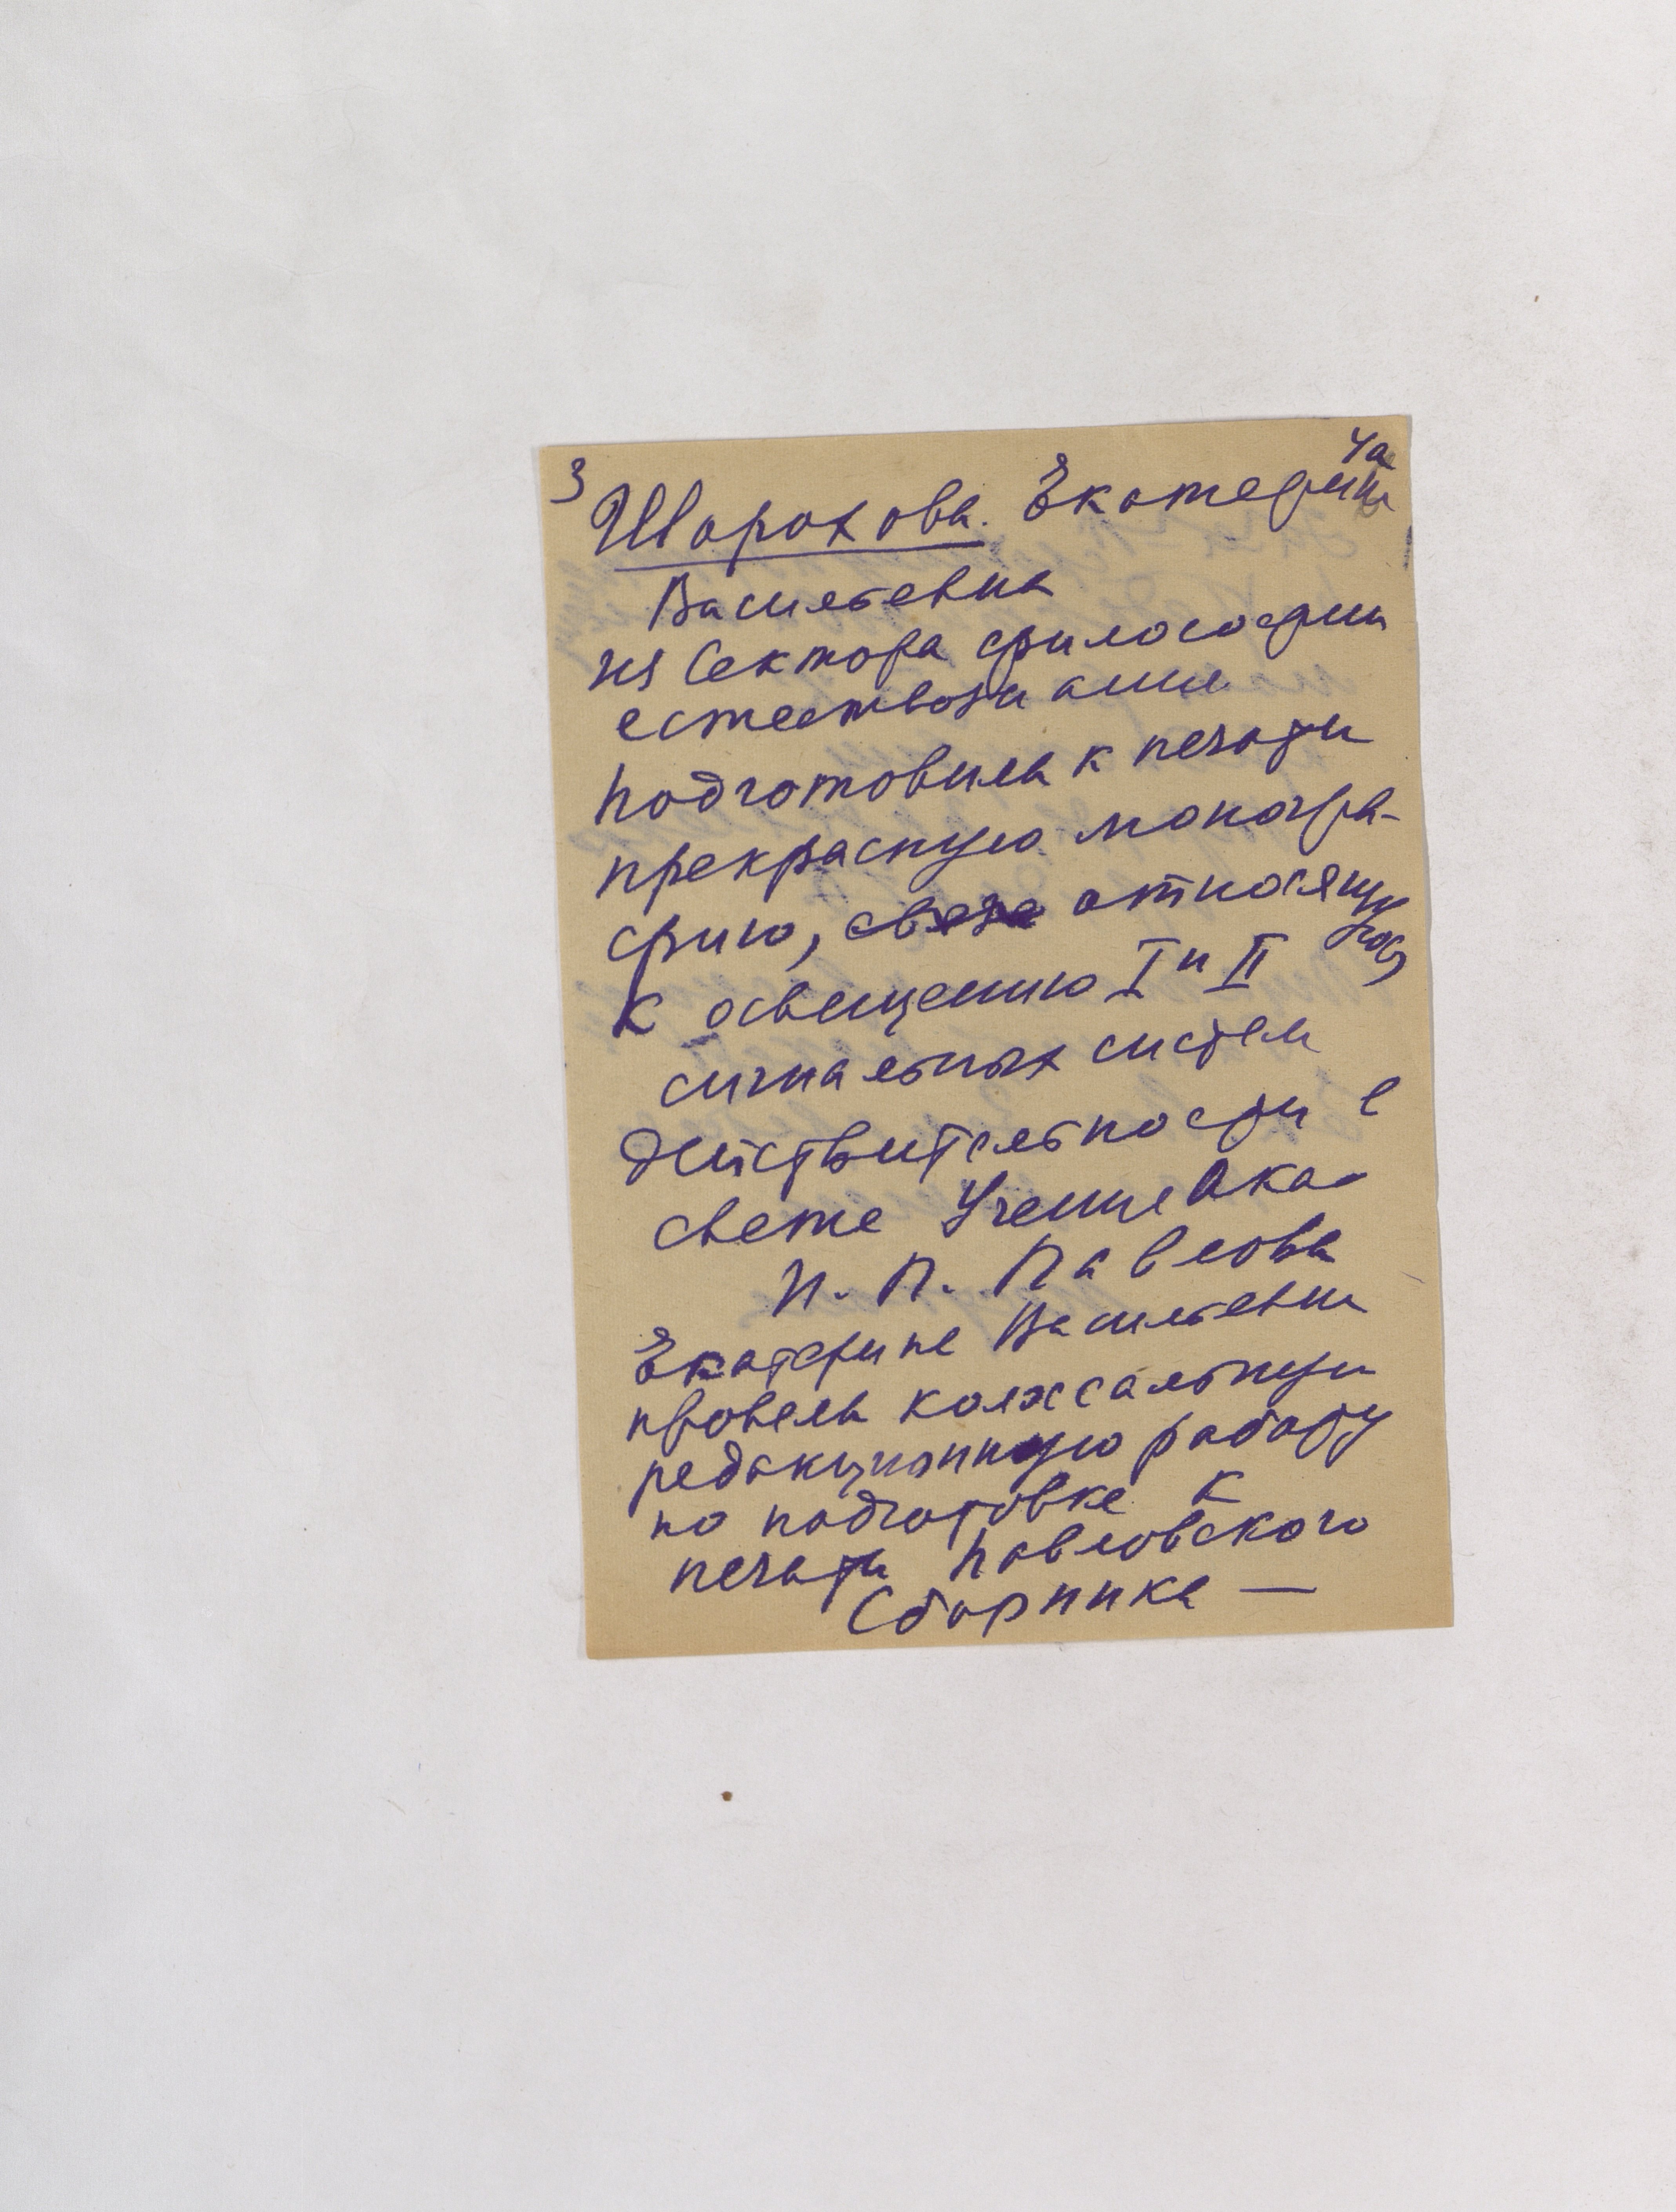 3
4а
Шорохова. Екатерина
Васильевна
из Сектора философии
естествознания
подготовила к печати
прекрасную моногра-
фию, относящуюся
к освещению I и II
сигнальных систем
действительности в
свете Учения Ака
И. П. Павлова
Екатерина Васильевна
провела колоссальную
редакционную работу
по подготовке к
печати Павловского
Сборника —